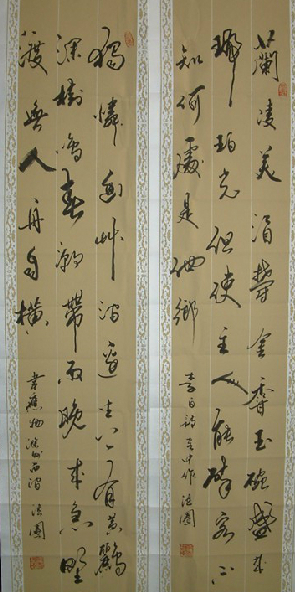 蘭陵美酒鬱金香玉碗盛來
琥珀光但使主人能醉客不
知何處是他鄉
李白詩客中作
獨憐幽草澗邊生上有黃鸝
深樹鳴春潮帶雨晚來急野
渡無人舟自橫
韋應物滁州西澗